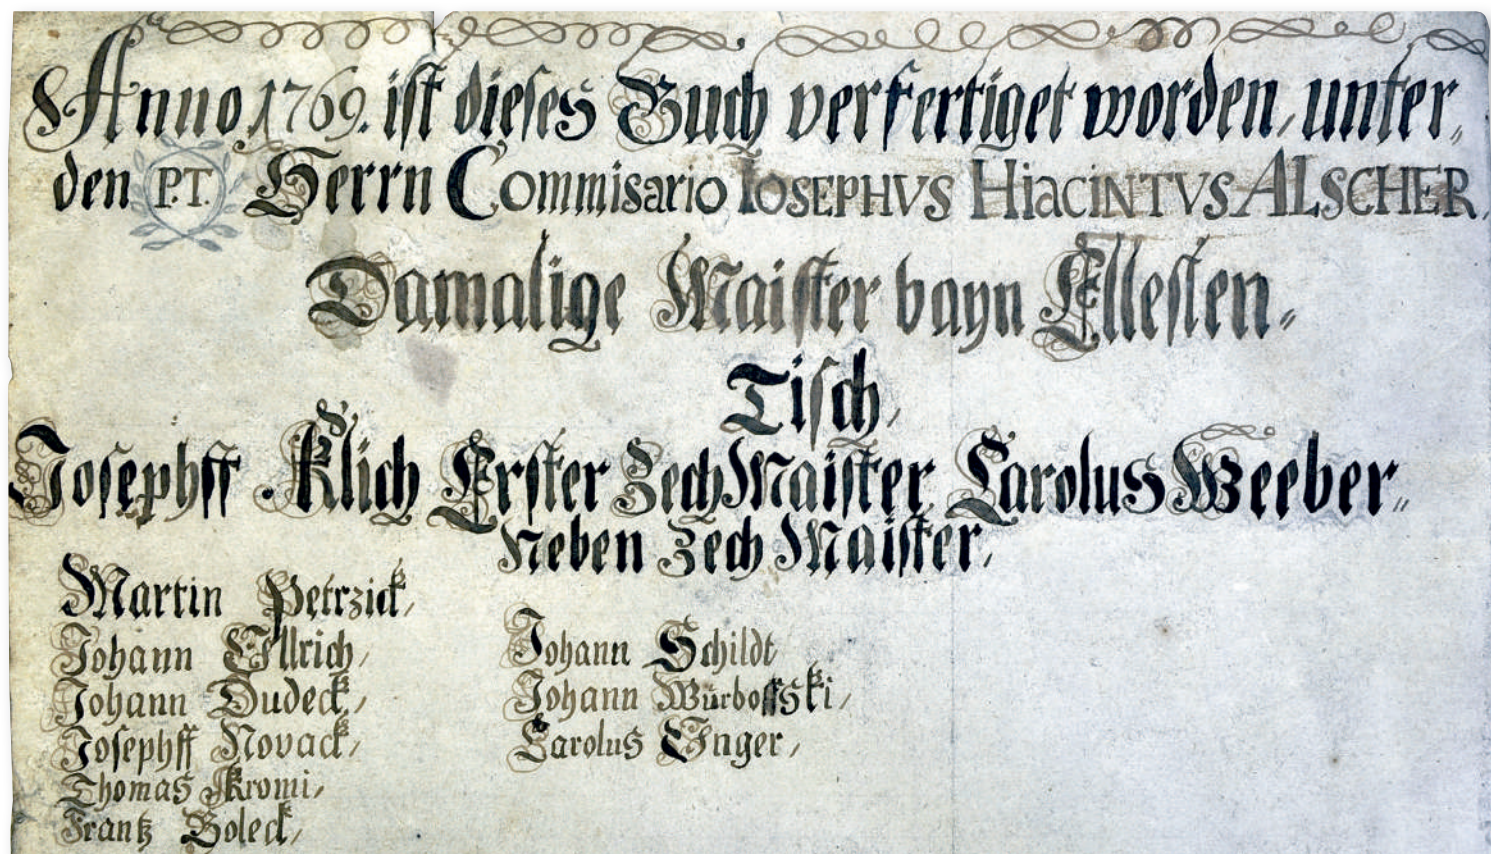 Anno 1769. ist dieses Buch verfertiget worden, unter,,
den P.T. Herrn Commisario IOSEPHVS HIACINTVS ALSCHER,
Damalige Maister bayn Ellesten,,
Tisch,
Josephff Klich Erster Zech Maister, Carolus Weeber,,
Neben Zech Maister,
Martin Petrzick,
Johann Ullrich,
Johann Dudeck,
Josephff Novack,
Thomas Kromi,
Frantz Boleck,
Johann Schildt
Johann Würboffski,
Carolus Unger,